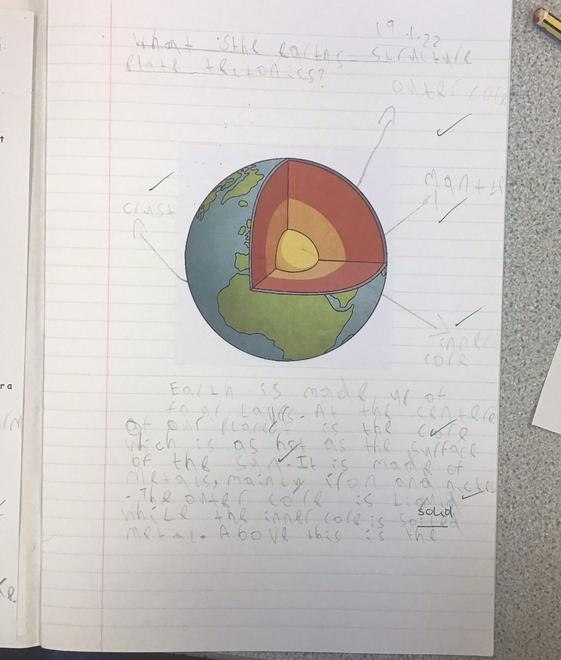 19.1.22
What isthe earths structure
Plate tectonics?
outer core
Mantle
crust
inner
core
Earth is made up of
four layers. At the centere
of our planet is the core
which is as hot as the surface
of the sun. It is made of
metals, mainly iron and nickel
. The outer core is Liquid
solid
while the inner core is soiled
metal. Above this is the
ra